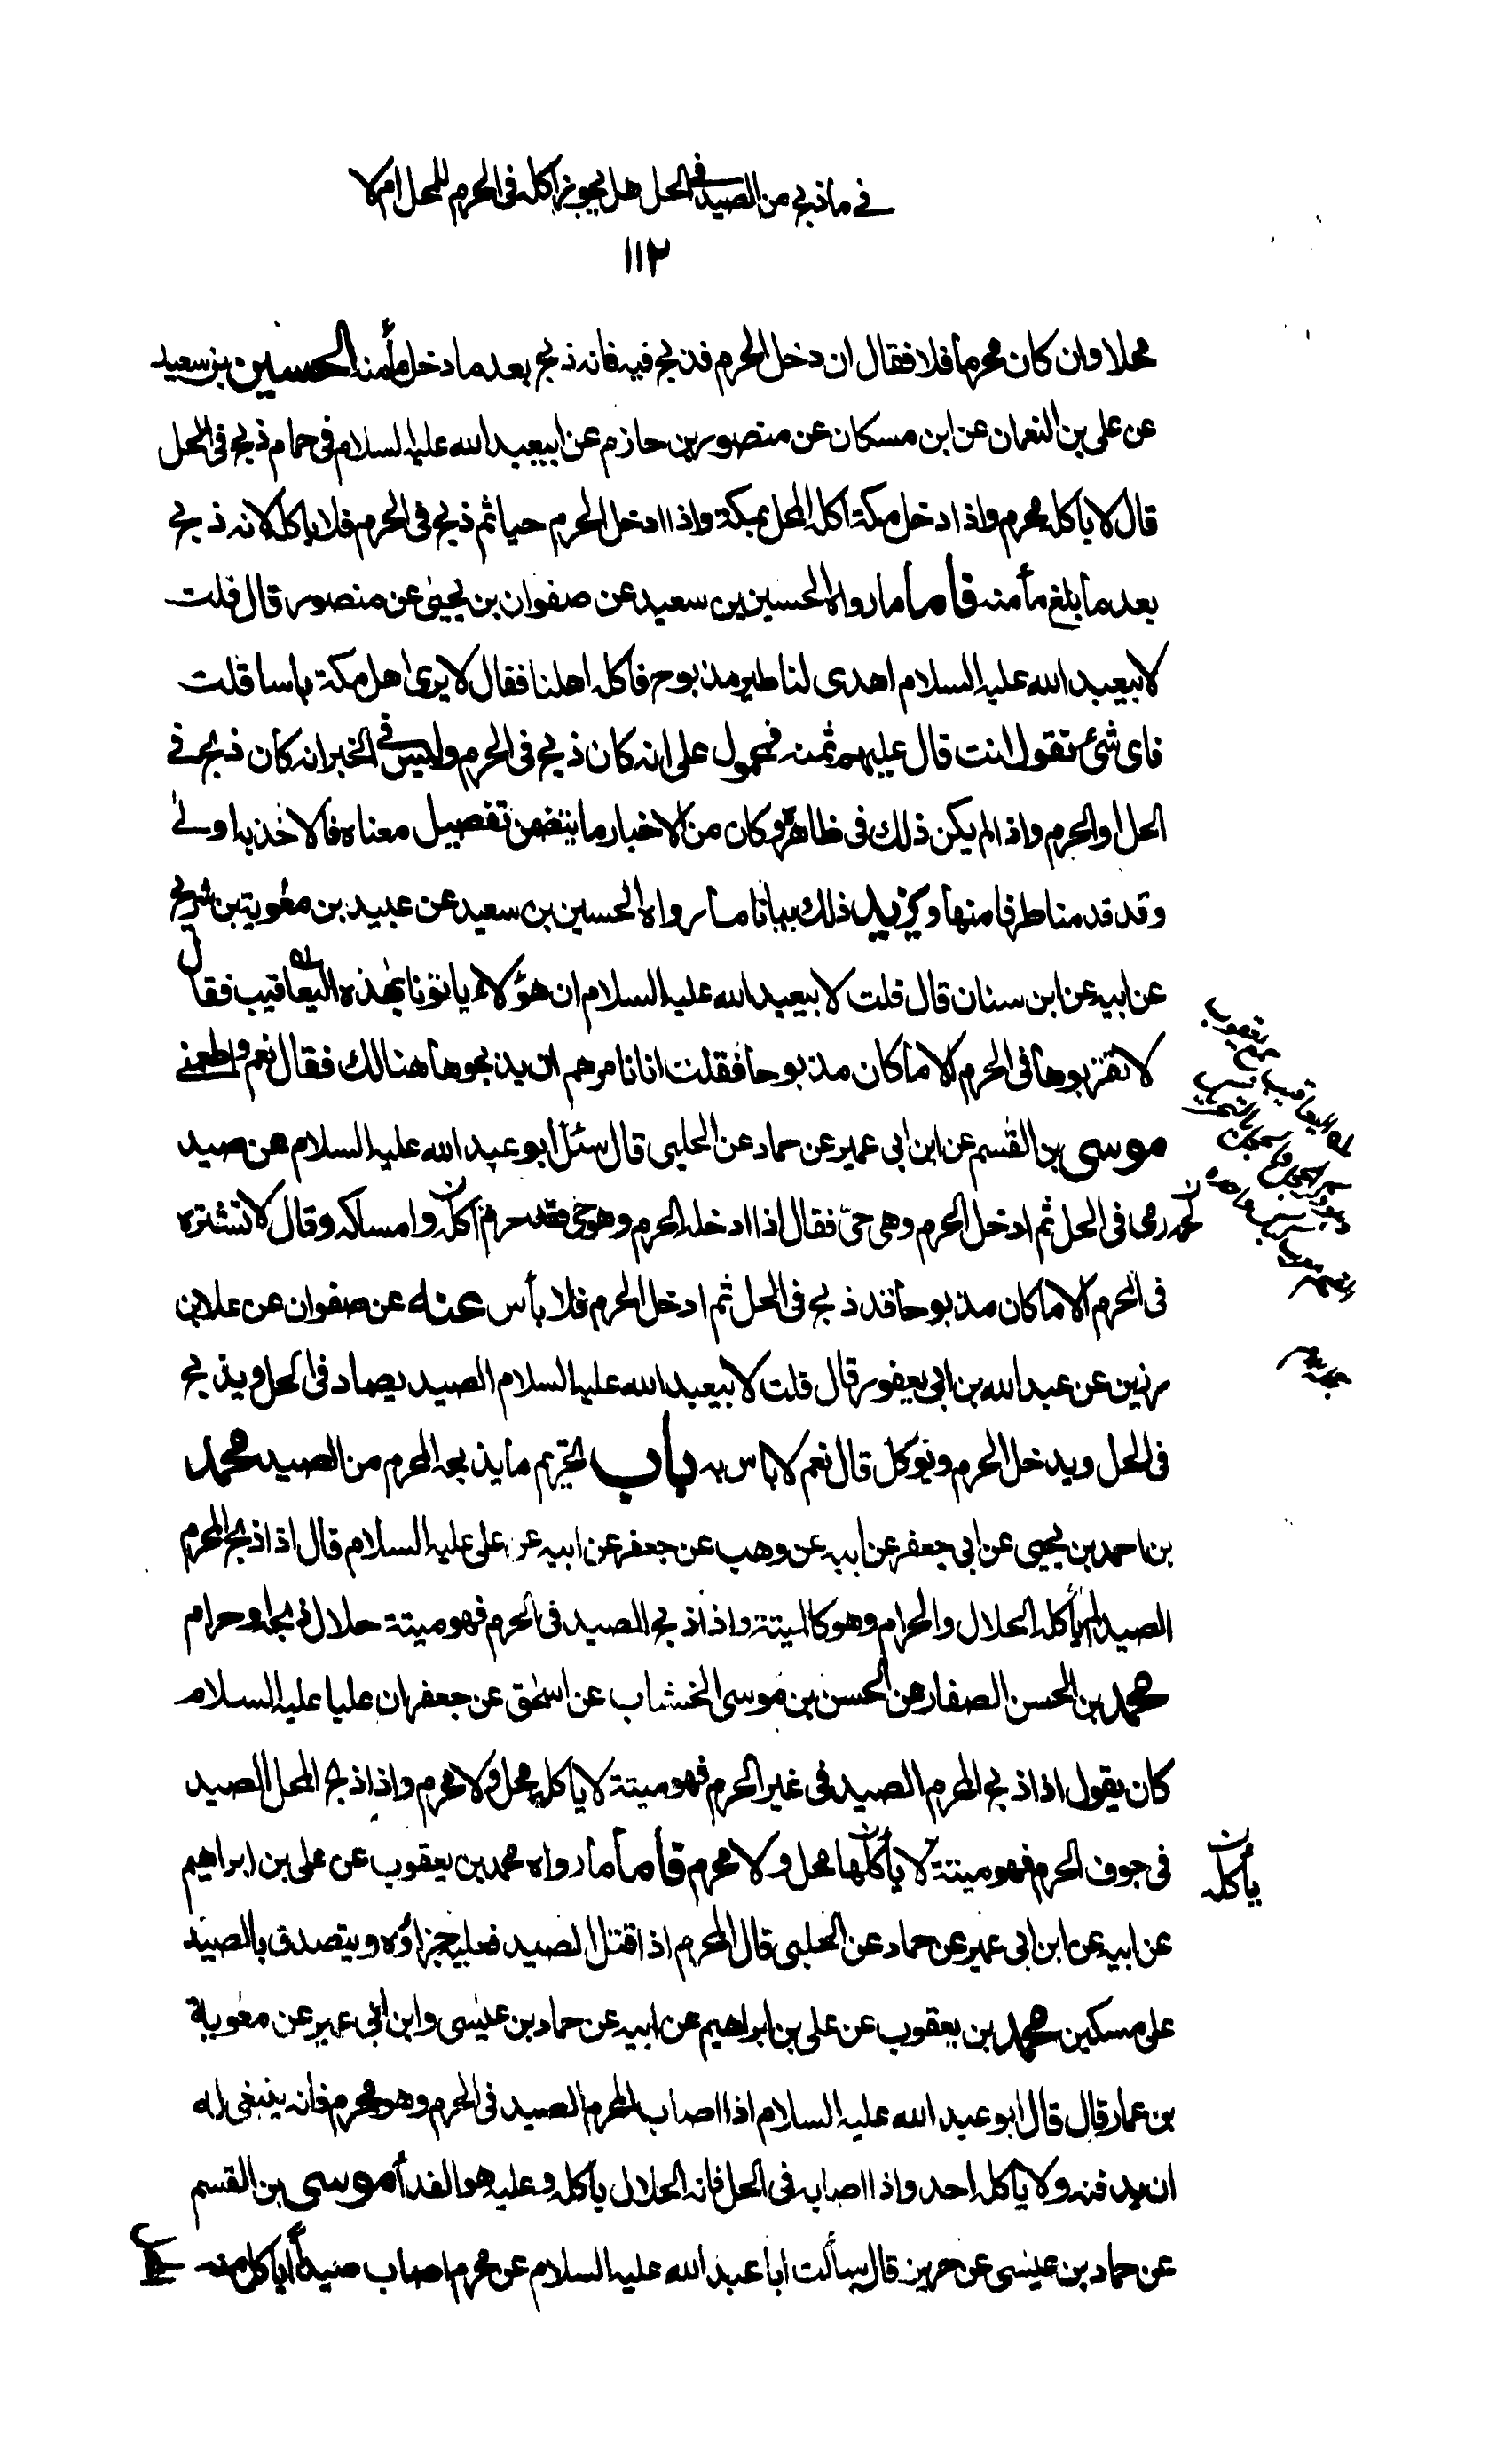 في ما ذبح من الصيد في الحل هل يجوز اكله في الحرم للمحل ام لا
١١٢
محلا وان كان محرما فلا فقال ان دخل الحرم فذبح فيه فانه ذبح بعد ما دخل مأمنه الحسين بن سعيد
عن على بن النعمان عن ابن مسكان عن منصور بن حازم عن ابيعبد الله عليه السلام في حمام ذبح في الحل
قال لا يأكله محرم واذا دخل مكة اكله المحل بمكة واذا ادخل الحرم حيا ثم ذبح في الحرم فلا يأكله لانه ذبح
بعد ما بلغ مأمنه فاما ما رواه الحسين بن سعيد عن صفوان بن يحيى عن منصور قال قلت
لابيعبد الله عليه السلام اهدى لنا طير مذبوح فاكله اهلنا فقال لا يرى اهل مكة باسا قلت
فاى شئ تقول انت قال عليهم ثمنه فمحمول على انه كان ذبح في الحرم وليس في الخبر انه كان ذبح في
الحل او الحرم واذا لم يكن ذلك في ظاهره وكان من الاخبار ما يتضمن تفصيل معناه فالاخذ به اولى
وقد قدمنا طرفا منها ويزيد ذلك بيانا ما رواه الحسين بن سعيد عن عبيد بن معوية بن شريح
عن ابيه عن ابن سنان قال قلت لابيعبد الله عليه السلام ان هؤلاء ياتونا بهذه اليعاقيب فقال
لا تقربوها في الحرم الا ما كان مذبوحا فقلت انا نامرهم ان يذبحوها هنالك فقال نعم واطعمني
موسى بن القسم عن ابن ابى عمير عن حماد عن الحلبى قال سئل ابو عبد الله عليه السلام عن صيد
رمى في الحل ثم ادخل الحرم وهى حىّ فقال اذا ادخله الحرم وهو حى فقد حرم اكله وامساكه وقال لا تشتره
في الحرم الا ما كان مذبوحا قد ذبح في الحل ثم ادخل الحرم فلا بأس عنه عن صفوان عن علا بن
رزين عن عبد الله بن ابى يعفور قال قلت لابيعبد الله عليه السلام الصيد يصاد في الحل ويذبح
في الحل ويدخل الحرم ويؤكل قال نعم لا باس به باب تحريم ما يذبحه المحرم من الصيد محمد
بن احمد بن يحيى عن ابى جعفر عن ابيه عن وهب عن جعفر عن ابيه عن على عليه السلام قال اذا ذبح المحرم
الصيد لم يأكله الحلال والحرام وهو كالميتة واذا ذبح الصيد في الحرم فهو ميتة حلال ذبحه او حرام
محمد بن الحسن الصفار عن الحسن بن موسى الخشاب عن اسحق عن جعفر ان عليا عليه السلام
كان يقول اذا ذبح المحرم الصيد في غير الحرم فهو ميتة لا يأكله محل ولا محرم واذا ذبح المحل الصيد
في جوف الحرم فهو ميتة لا يأكلها محل ولا محرم فأما ما رواه محمد بن يعقوب عن على بن ابراهيم
يأكله
عن ابيه عن ابن ابى عمير عن حماد عن الحلبى قال المحرم اذا قتل الصيد فعليه جزاؤه ويتصدق بالصيد
على مسكين محمد بن يعقوب عن على بن ابراهيم عن ابيه عن حماد بن عيسى وابن ابى عمير عن معوية
بن عمار قال قال ابو عبد الله عليه السلام اذا اصاب المحرم الصيد في الحرم وهو محرم فانه ينبغى له
ان يدفنه ولا يأكله احد واذا اصابه في الحل فانه الحلال يأكله وعليه هو الفدأ موسى بن القسم
عن حماد بن عيسى عن حريز قال سألت ابا عبد الله عليه السلام عن محرم اصاب صيداً اياكل منه